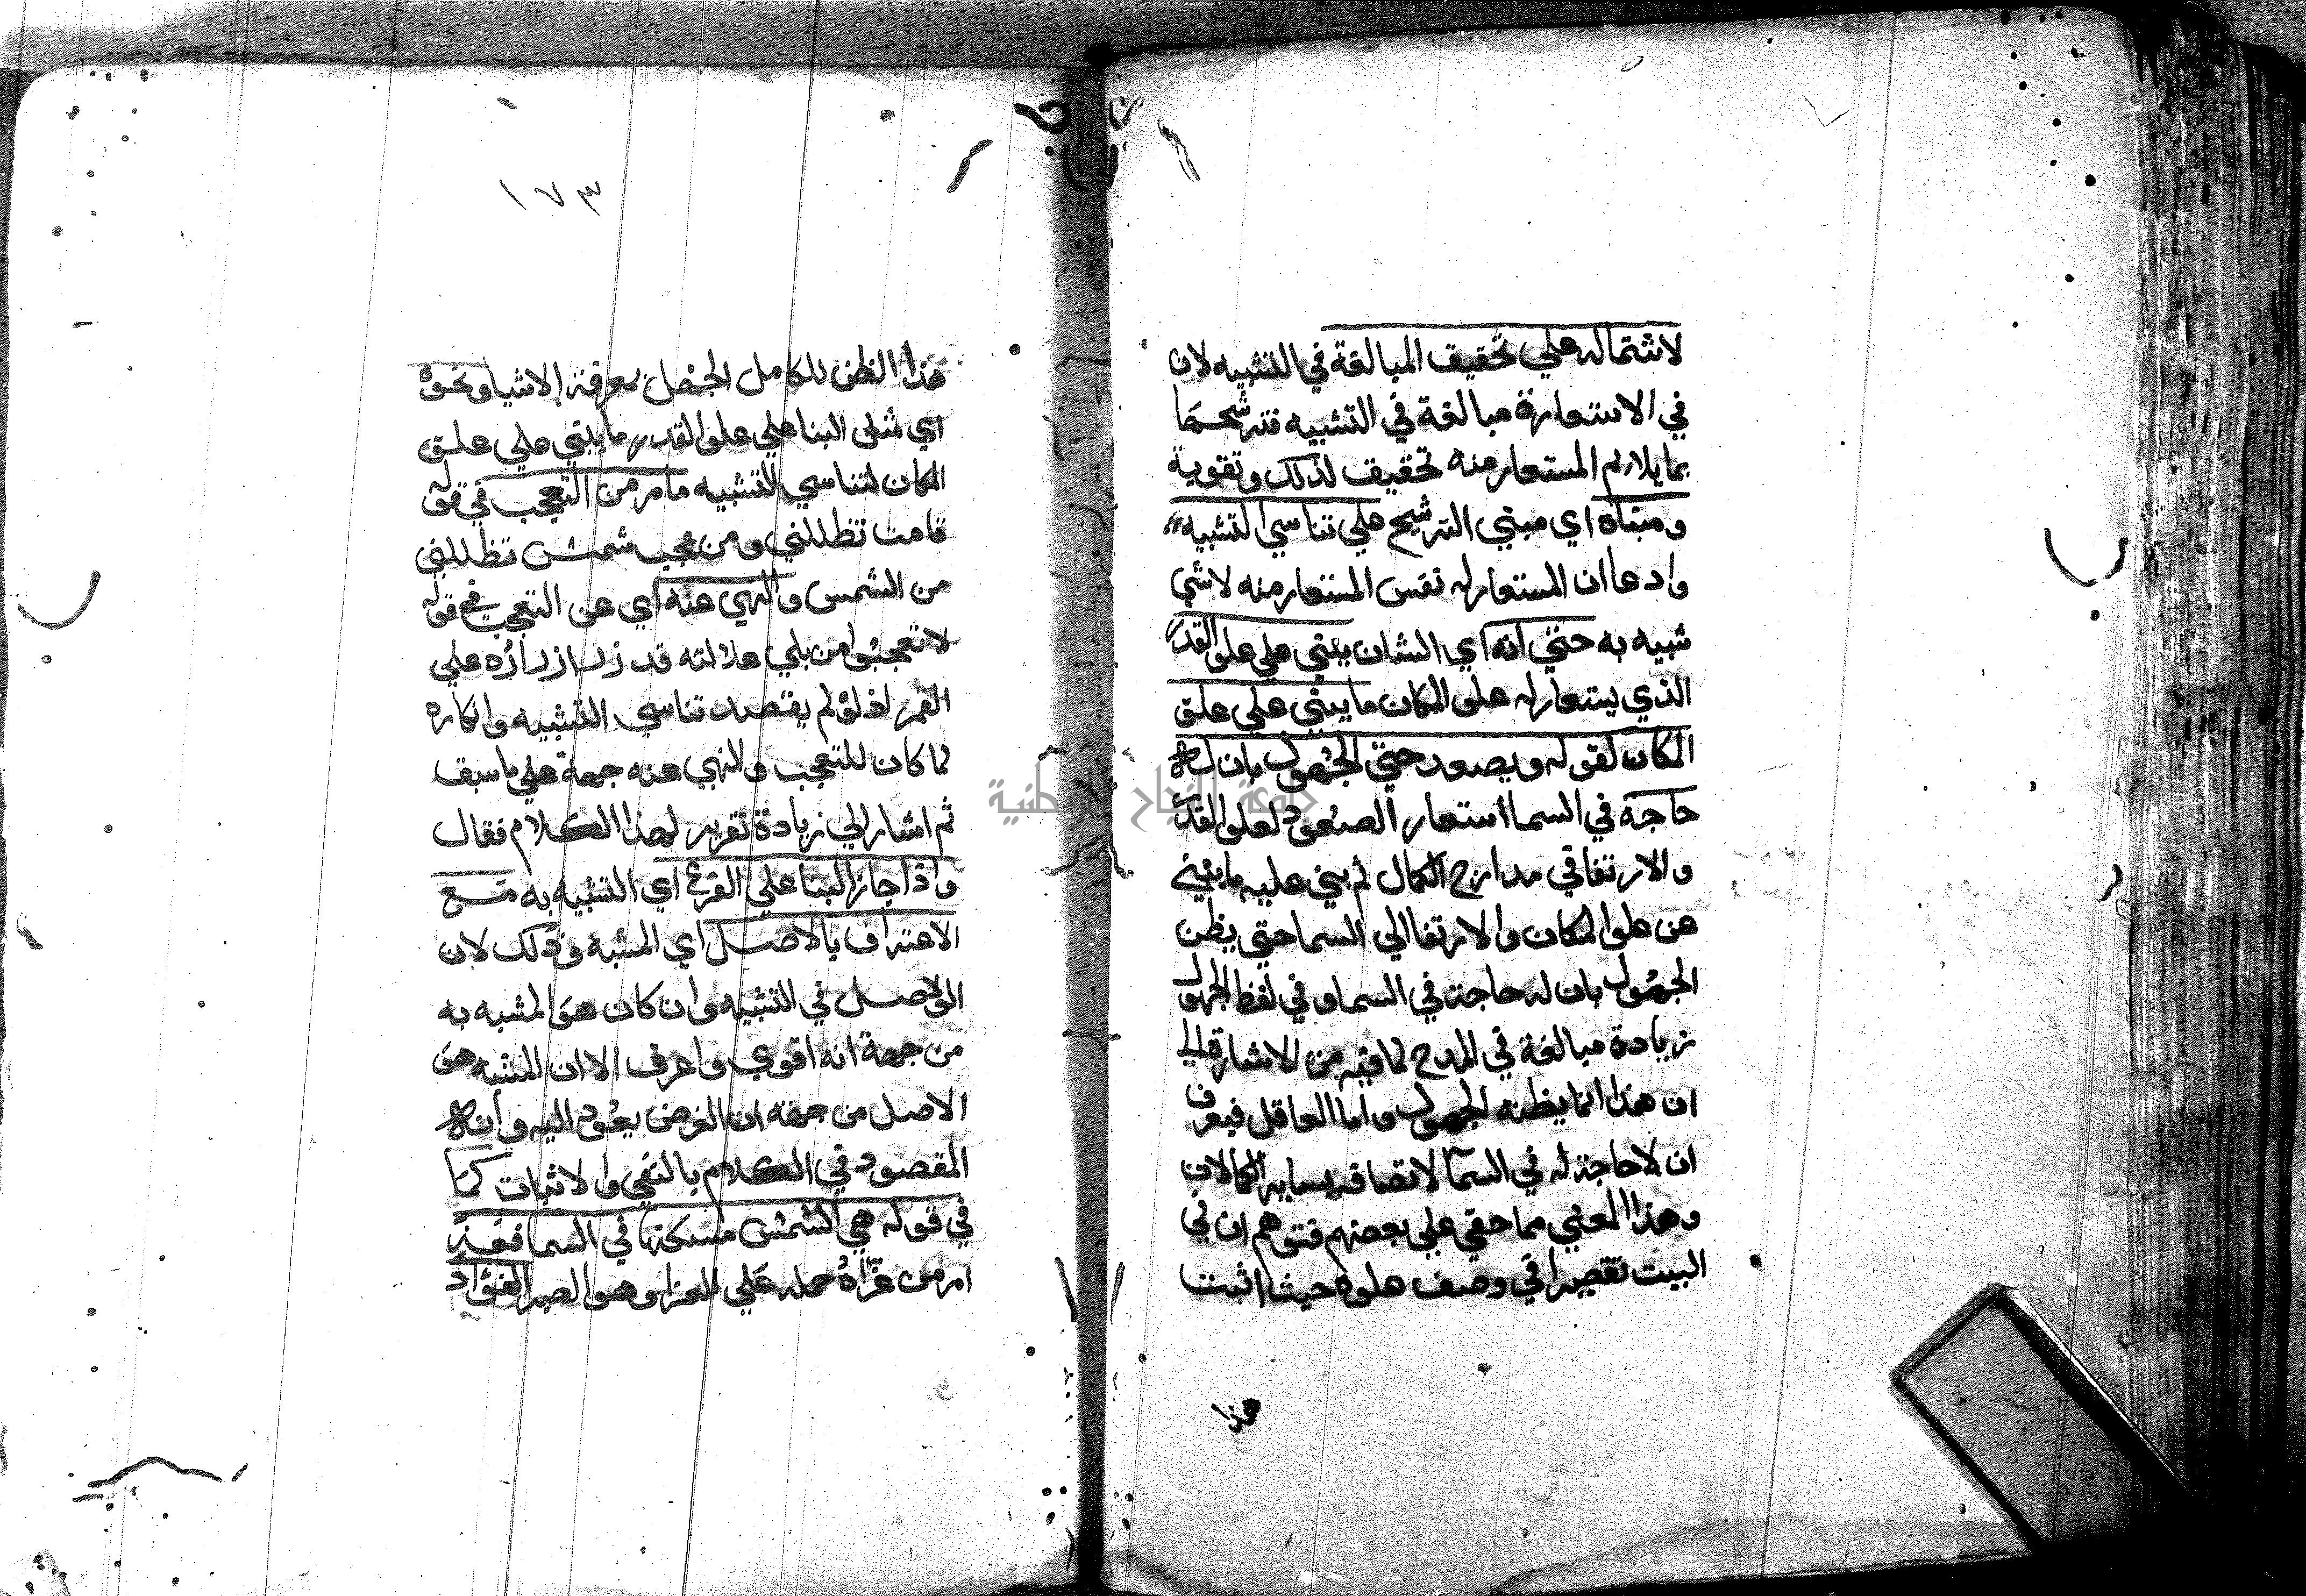 لاشتماله علي تحقيق المبالغة في التشبيه لان
في الاستعارة مبالغة في التشبيه فترشحها
بما يلايم المستعار منه تحقيق لذلك وتقوية
ومبناه اي مبني الترشيح علي تناسي التشبيه
وادعا ان المستعار له نفس المستعار منه لا شي
شبيه به حتي انه اي الشان يبني علي علو القدر
الذي يستعار له علو المكان ما يبني علي علو
المكان لقوله ويصعد حتي الجهول بان له
حاجة في السما استعار الصعود لعلو القدر
والارتقا في مدارج الكمال ثم بني عليه ما يبني
من علو المكان والارتقا الي السما حتي يظن
الجهول بان له حاجة في السما وفي لفظ الجهول
زيادة مبالغة في المدح لما فيه من الاشارة الي
ان هذا انما يظنه الجهول واما العاقل فيعرف
ان لا حاجة له في السما لاتصافه بساير الكمالات
وهذا المعني مما خفي علي بعضهم فتوهم ان في
البيت تقصيرا في وصف علوه حيث اثبت
هذا
١٧٣
هذا الظن للكامل الجهل بمعرفة الاشيا ونحوه
اي مثل البنا علي علو القدر ما يبني علي علو
المكان لتناسي التشبيه ما مر من التعجب في قوله
قامت تظللني ومن عجب شمس تظللني
من الشمس والنهي عنه اي عن التعجب في قوله
لا تعجبوا من بلي غلالته قد زر ازراره علي
القمر اذ لو لم يقصد تناسي التشبيه وانكاره
لما كان للتعجب والنهي عنه جهة علي ما سبق
ثم اشار الي زيادة تقرير لهذا الكلام فقال
واذا جاز البنا علي الفرع اي التشبيه به مع
الاعتراف بالاصل اي المشبه وذلك لان
الاصل في التشبيه وان كان هو المشبه به
من جهة انه اقوي واعرف الا ان المشبه هو
الاصل من جهة ان الغرض يعود اليه وانه
المقصود في الكلام بالنفي والاثبات كما
في قوله هي الشمس مسكنها في السما فعز
امر من عزاه حمله علي العزا وهو الصبر الفؤاد